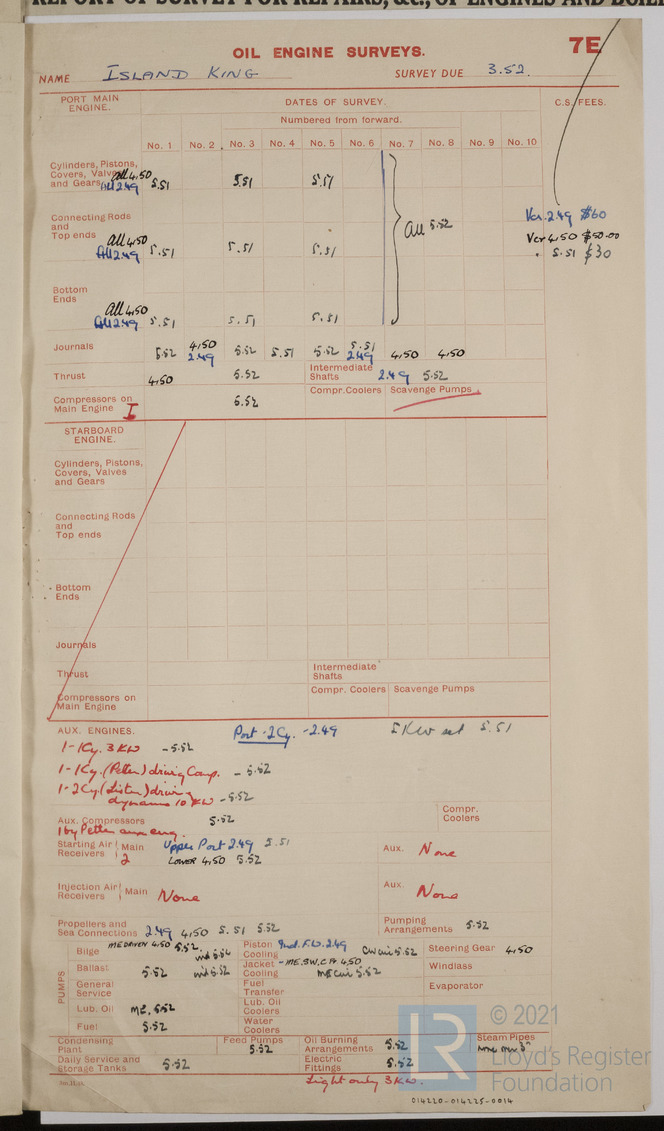 REPORT OF SURVEY FOR REPAIRS, &c., OF ENGINES AND BOIL
7E
OIL ENGINE SURVEYS.
NAME ISLAND KING SURVEY DUE 3.52.
PORT MAIN ENGINE. DATES OF SURVEY. C.S. FEES.
Numbered from forward.
No. 1 No. 2 No. 3 No. 4 No. 5 No. 6 No. 7 No. 8 No. 9 No. 10
Cylinders, Pistons,
Covers, Valves All 4.50
and Gears All 2.49 5.51 5.51 5.51
All 5.52
Connecting Rods
and
Top ends All 4.50
All 2.49 5.51 5.51 5.51
Vcr. 2.49 $60
Vcr 4.50 $50.00
" 5.51 $30
Bottom
Ends All 4.50
All 2.49 5.51 5.51 5.51
Journals 5.52 4.50 2.49 5.52 5.51 5.52 5.51 2.49 4.50 4.50
Thrust 4.50 5.52 Intermediate Shafts 2.49 5.52
Compressors on
Main Engine I 5.52 Compr. Coolers Scavenge Pumps
STARBOARD
ENGINE.
Cylinders, Pistons,
Covers, Valves
and Gears
Connecting Rods
and
Top ends
Bottom
Ends
Journals
Thrust Intermediate Shafts
Compressors on
Main Engine Compr. Coolers Scavenge Pumps
AUX. ENGINES. Port - 2 Cy. - 2.49 5 KW set 5.51
1 - 1 Cy. 3 KW - 5.52
1 - 1 Cy. (Petter) driving Comp. - 5.52
1 - 2 Cy. (Lister) driving
dynamo 10 KW - 5.52
Aux. Compressors 5.52 Compr. Coolers
1 by Petter aux eng.
Starting Air Receivers Main 2 Upper Port 2.49 5.51 Aux. None
LOWER 4.50 5.52
Injection Air Receivers Main None Aux. None
Propellers and
Sea Connections 2.49 4.50 5.51 5.52 Pumping Arrangements 5.52
PUMPS
Bilge ME DRIVEN 4.50 5.52. ind 5.52 Piston Cooling Ind. F.W. 2.49 CW cir 5.52 Steering Gear 4.50
Ballast 5.52 ind 5.52 Jacket Cooling - ME. SW. C.P. 4.50 ME cir 5.52 Windlass
General Service Fuel Transfer Evaporator
Lub. Oil ME. 5.52 Lub. Oil Coolers
Fuel 5.52 Water Coolers
Condensing Plant Feed Pumps 5.52 Oil Burning Arrangements 5.52 Steam Pipes none over 3"
Daily Service and
Storage Tanks 5.52 Electric Fittings 5.52
Light only 3 KW.
© 2021
LR
Lloyd's Register
Foundation
014220-014225-0014